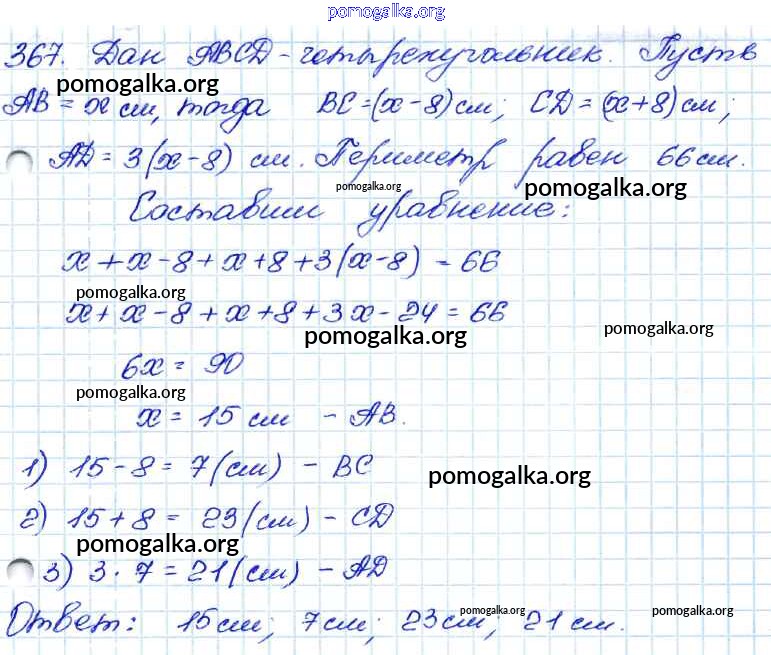 pomogalka.org
367. Дан ABCD - четырехугольник. Пусть
pomogalka.org
AB = x см, тогда BC = (x - 8) см; CD = (x + 8) см;
AD = 3(x - 8) см. Периметр равен 66 см.
pomogalka.org pomogalka.org
Составим уравнение:
x + x - 8 + x + 8 + 3(x - 8) = 66
pomogalka.org
x + x - 8 + x + 8 + 3x - 24 = 66
pomogalka.org pomogalka.org
6x = 90
pomogalka.org
x = 15 см - AB.
1) 15 - 8 = 7 (см) - BC
pomogalka.org
2) 15 + 8 = 23 (см) - CD
pomogalka.org
3) 3 · 7 = 21 (см) - AD
pomogalka.org pomogalka.org
Ответ: 15 см; 7 см; 23 см; 21 см.